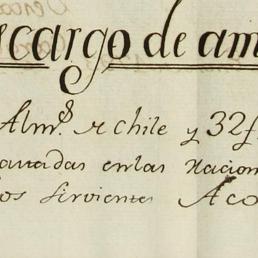 scargo de am
Alm.s r chile y 32f
anadas en las Nacion
os sirvientes Aco